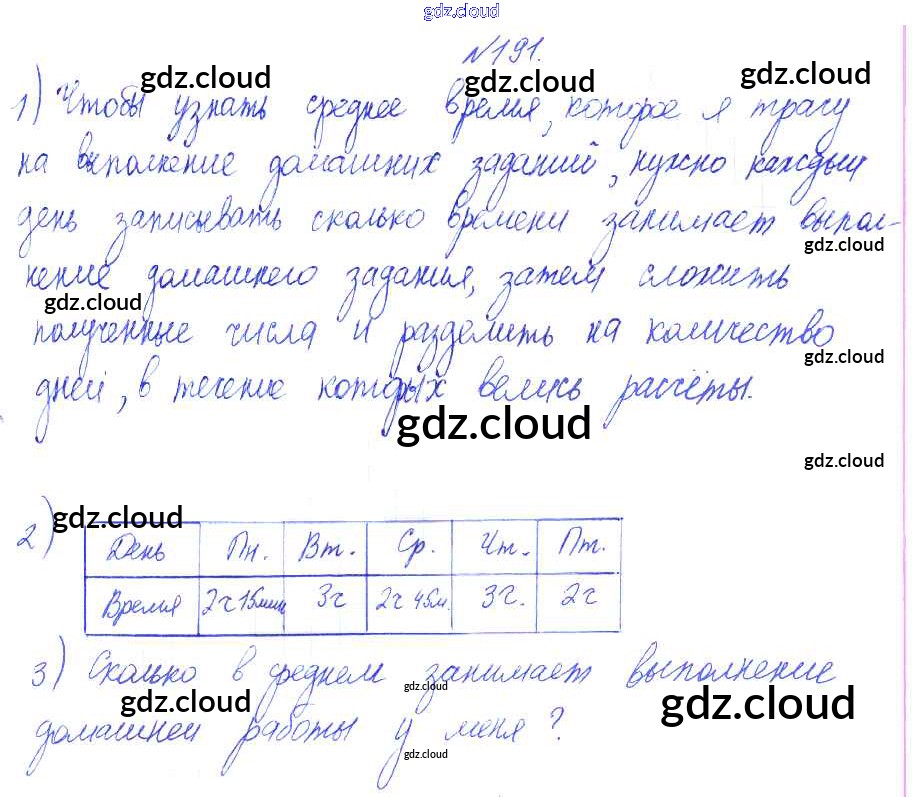 gdz.cloud
№191.
gdz.cloud
gdz.cloud
1) Чтобы узнать среднее время, которое я трачу
на выполнение домашних заданий, нужно каждый
день записывать сколько времени занимает выпол-
gdz.cloud
нение домашнего задания, затем сложить
gdz.cloud
полученные числа и разделить на количество
gdz.cloud
дней, в течение которых велись расчёты.
gdz.cloud
gdz.cloud
2) gdz.cloud
День Пн. Вт. Ср. Чт. Пт.
Время 2ч 15мин 3ч 2ч 45м. 3ч. 2ч
3) Сколько в среднем занимает выполнение
gdz.cloud
gdz.cloud
gdz.cloud
домашней работы у меня?
gdz.cloud